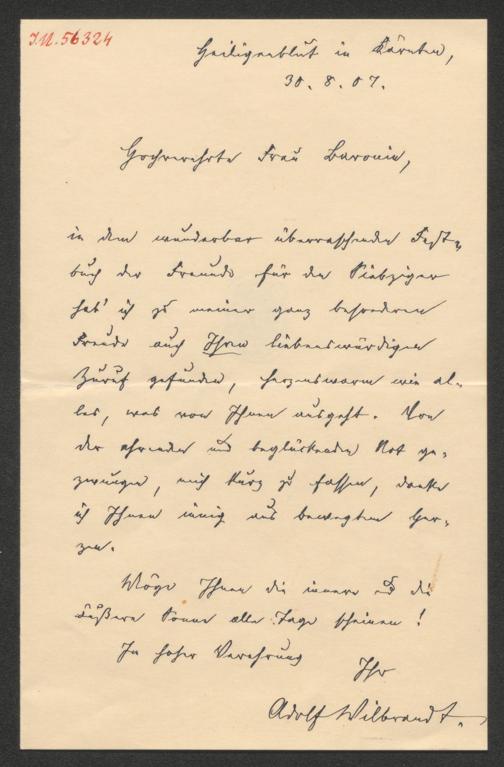 I.N. 56324
Heiligenblut in Kärnten,
30. 8. 07.
Hochverehrte Frau Baronin,
in dem wunderbar überraschenden Fest-
buch der Freunde für den Siebziger
hab' ich zu meiner ganz besonderen
Freude auch Ihren liebenswürdigen
Zuruf gefunden, herzenswarm wie al-
les, was von Ihnen ausgeht. Von
der ehrenden und beglückenden Not ge-
zwungen, mich kurz zu fassen, danke
ich Ihnen innig aus bewegtem Her-
zen.
Möge Ihnen die innere und die
äußere Sonne alle Tage scheinen!
In hoher Verehrung
Ihr
Adolf Wilbrandt.